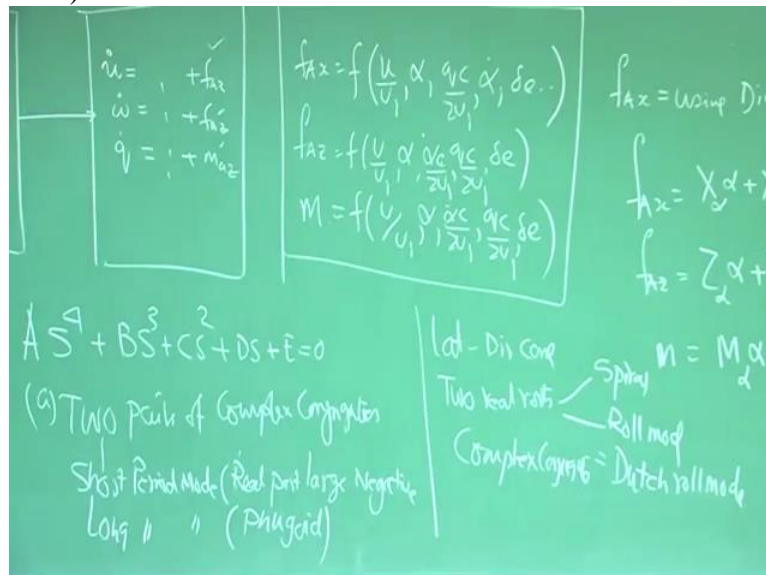 u̇ = ⋮ + fax
ẇ = ⋮ + faz
q̇ = ⋮ + maz
fAx = f(u/u1, α, qc/2u1, α̇, δe..)
fAz = f(u/u1, α, α̇c/2u1, qc/2u1, δe)
M = f(u/u1, α, α̇c/2u1, qc/2u1, δe)
fAx = using Di
fAx = Xα α +
fAz = Zα α +
m = Mα α
AS⁴ + BS³ + CS² + DS + E = 0
(a) Two pairs of Complex Conjugates
Short Period Mode (Real part large Negative
Long " " (Phugoid)
Lat-Dir case
Two real roots
Spiral
Roll mod
Complex Conjugate = Dutch roll mode